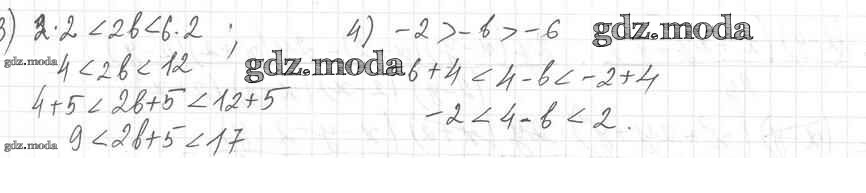 3) 2·2 < 2b < 6·2 ;
4 < 2b < 12
4+5 < 2b+5 < 12+5
9 < 2b+5 < 17
4) -2 > -b > -6
b+4 < 4-b < -2+4
-2 < 4-b < 2.
gdz.moda
gdz.moda
gdz.moda
gdz.moda